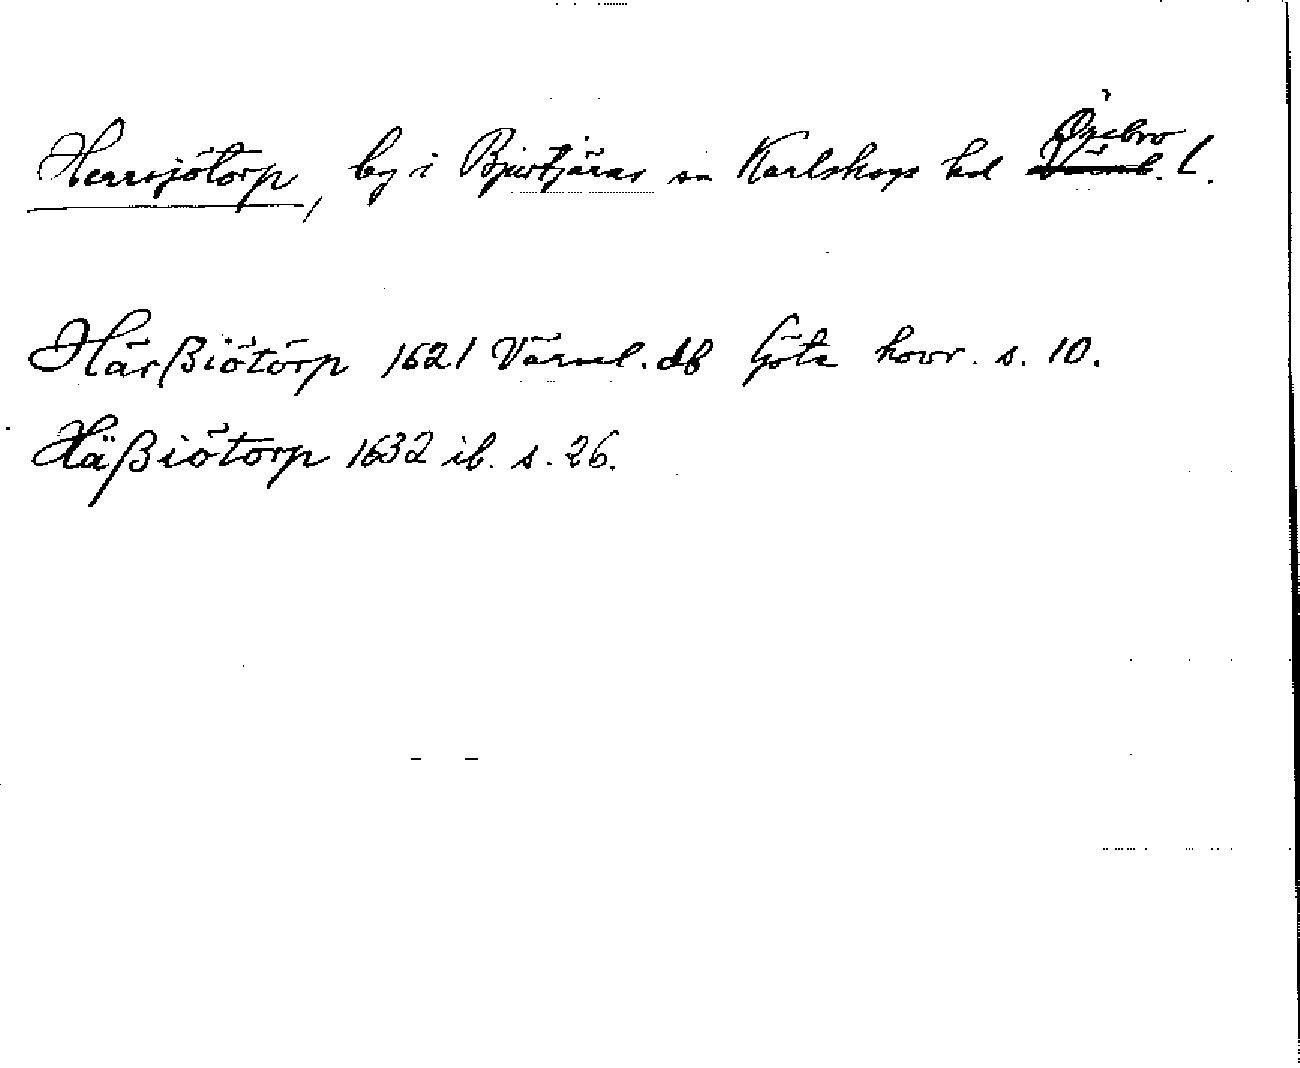 Herrsjötorp, by i Bjurtjärns sn Karlskoga hd Örebro l.
Härßiötorp 1621 Värml. db Göta hovr. s. 10.
Häßiötorp 1632 ib. s. 26.